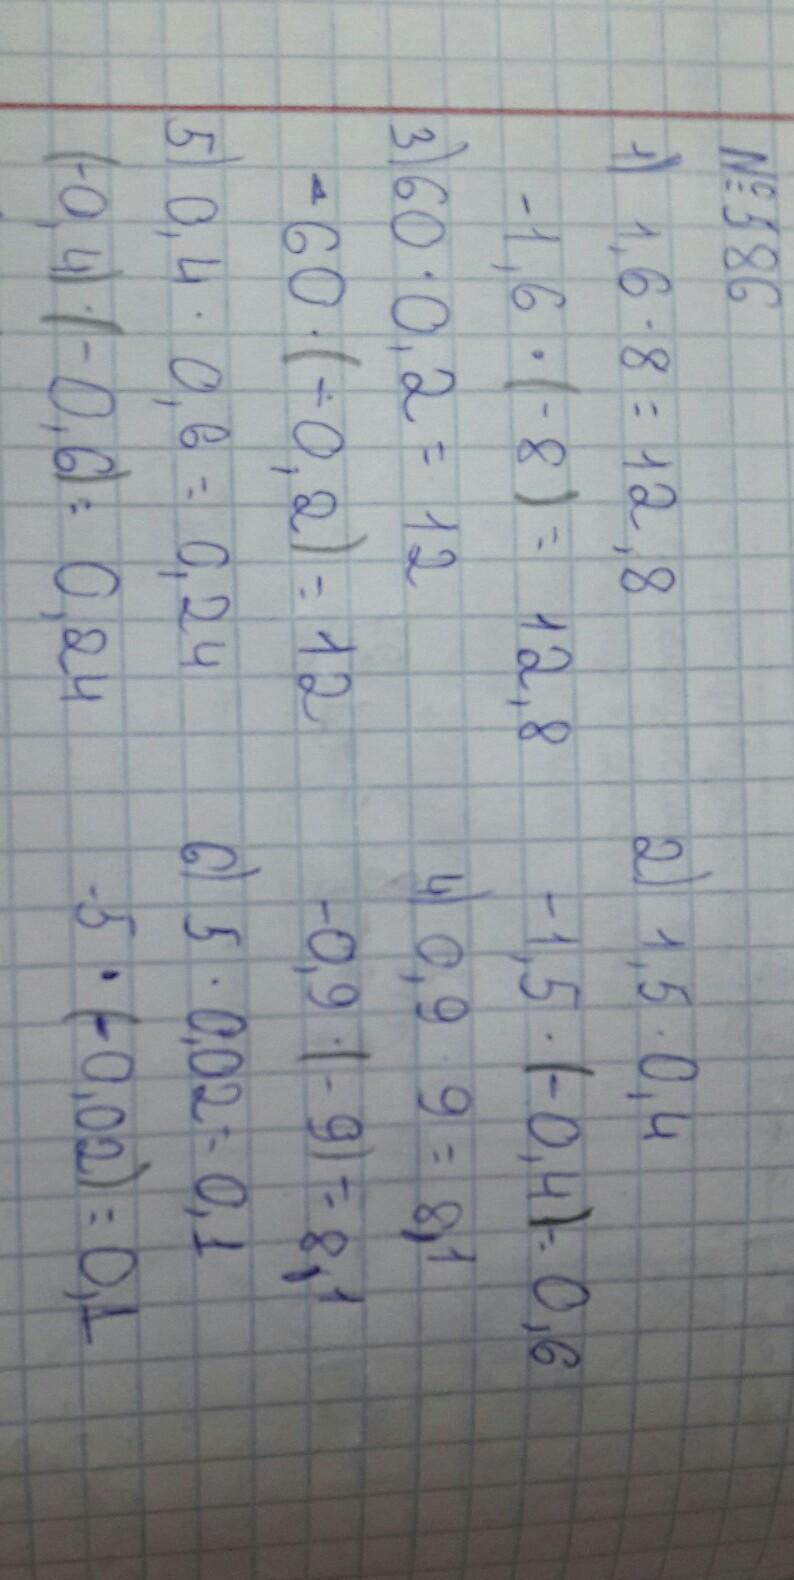 №586
1) 1,6·8=12,8
-1,6·(-8)= 12,8
2) 1,5·0,4
-1,5·(-0,4)=0,6
3) 60·0,2=12
-60·(-0,2)=12
4) 0,9·9=8,1
-0,9·(-9)=8,1
5) 0,4·0,6=0,24
(-0,4)·(-0,6)=0,24
6) 5·0,02=0,1
-5·(-0,02)=0,1